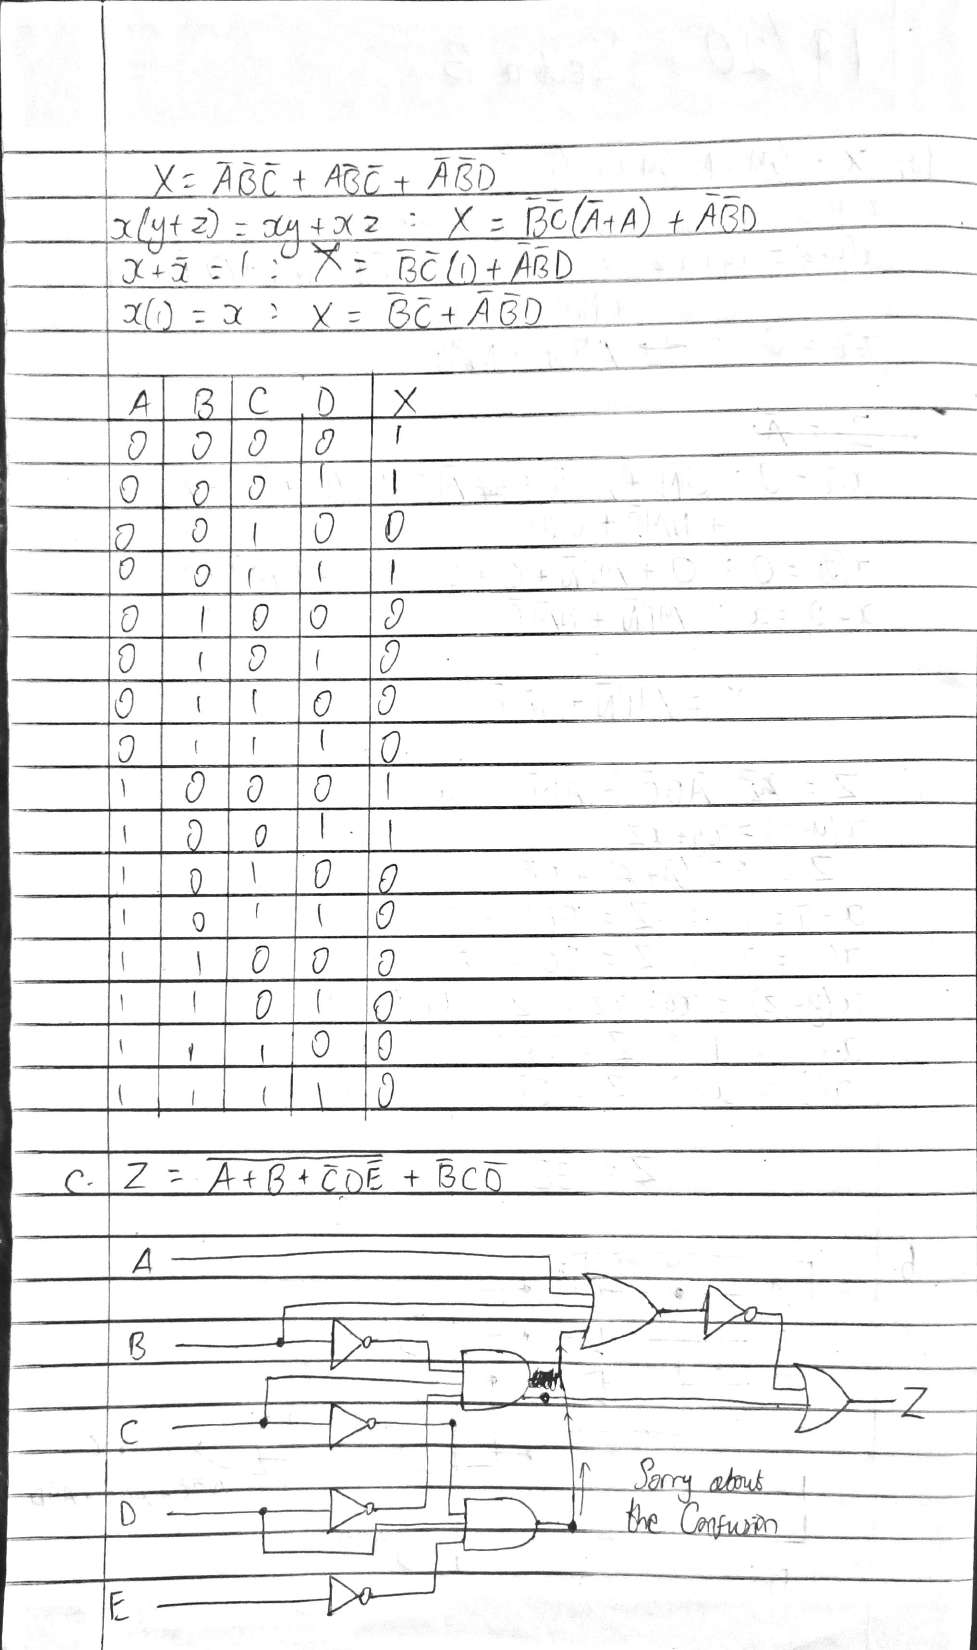 X = A̅B̅C̅ + AB̅C̅ + A̅B̅D
x(y+z) = xy + xz : X = B̅C̅(A̅+A) + A̅B̅D
x + x̅ = 1 : X = B̅C̅(1) + A̅B̅D
x(1) = x : X = B̅C̅ + A̅B̅D
A B C D X
0 0 0 0 1
0 0 0 1 1
0 0 1 0 0
0 0 1 1 1
0 1 0 0 0
0 1 0 1 0
0 1 1 0 0
0 1 1 1 0
1 0 0 0 1
1 0 0 1 1
1 0 1 0 0
1 0 1 1 0
1 1 0 0 0
1 1 0 1 0
1 1 1 0 0
1 1 1 1 0
C. Z = A̅ ̅+̅ ̅B̅ ̅+̅ ̅C̅̅D̅E̅̅ + B̅CD̅
A
B
C
D
E
Z
Sorry about
the Confusion